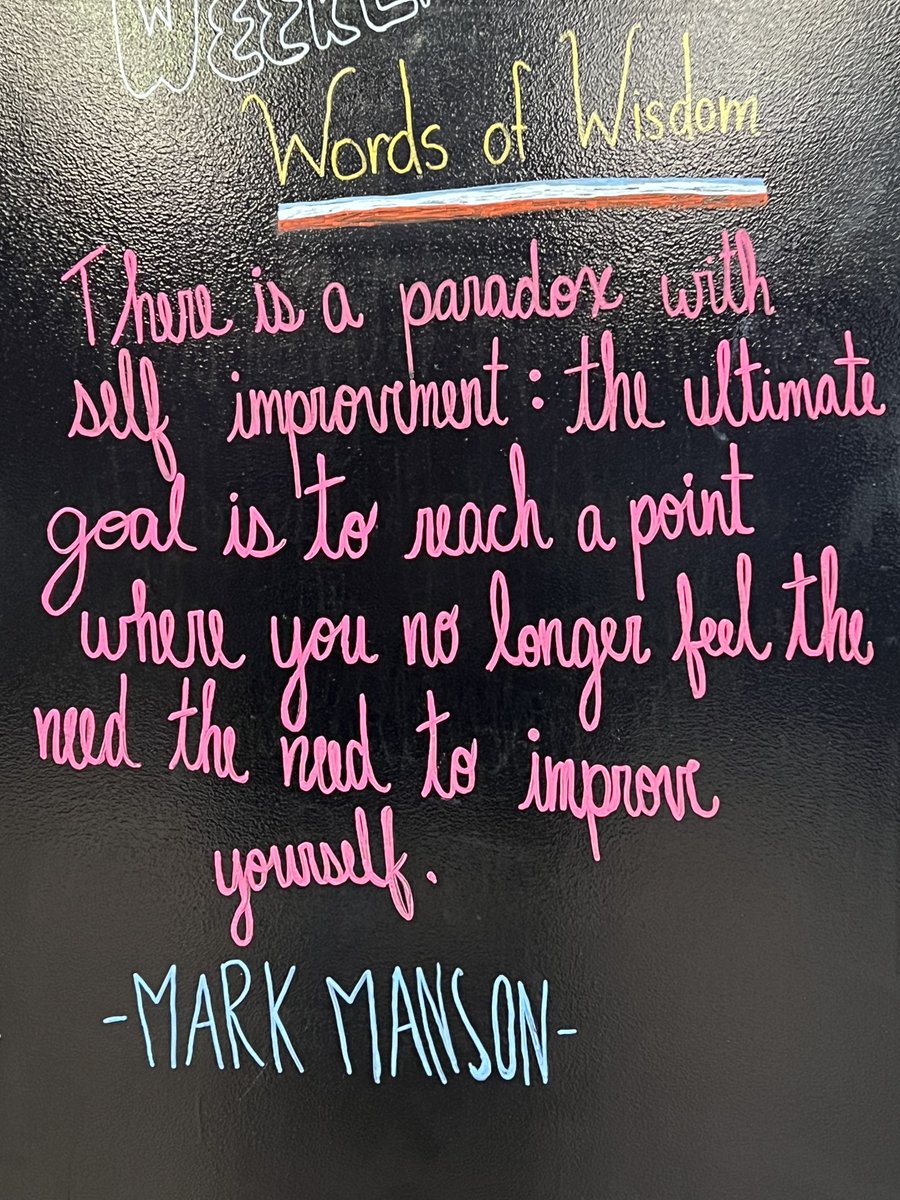 WEEKL
Words of Wisdom
There is a paradox with
self improvement: the ultimate
goal is to reach a point
where you no longer feel the
need the need to improve
yourself.
-MARK MANSON-